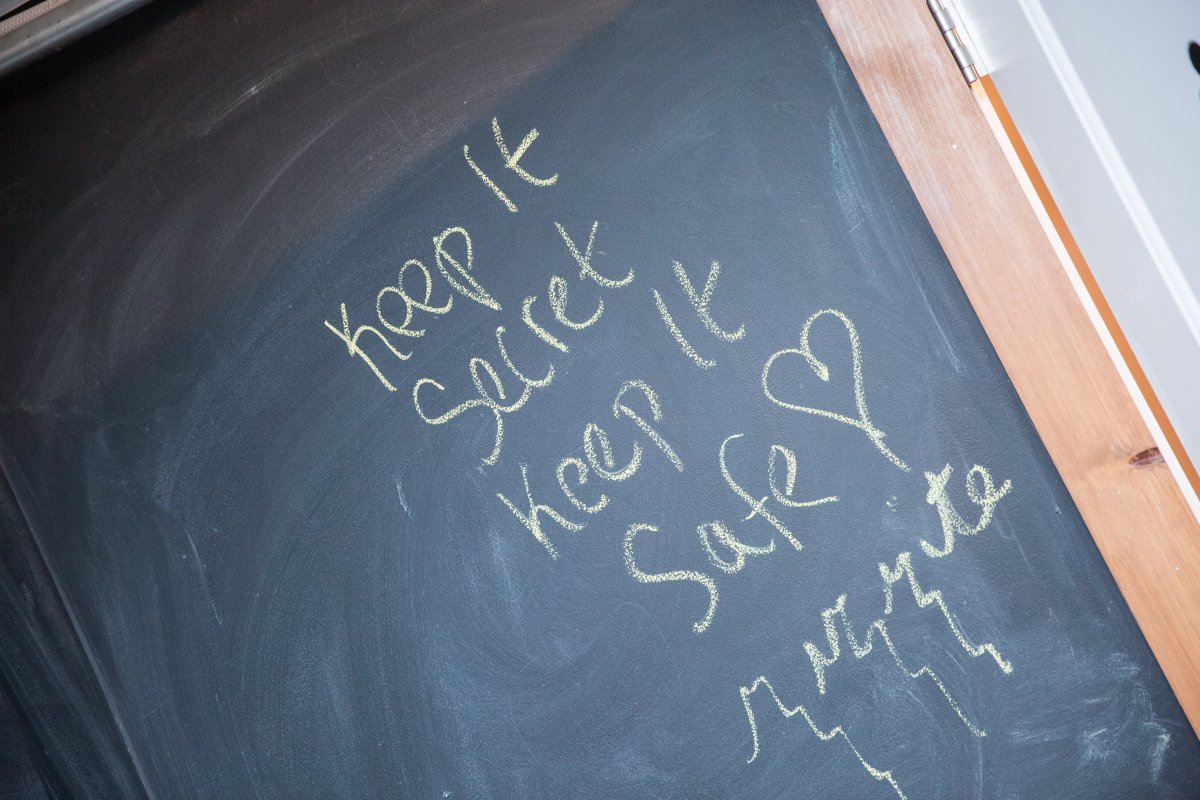 Keep It
Secret
Keep It
Safe